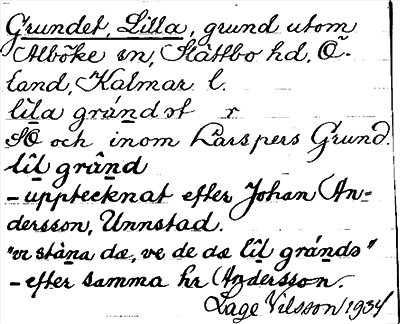 Grundet, Lilla, grund utom
Alböke sn, Slättbo hd, Ö-
land, Kalmar l.
lìla grándət r
SO och inom Larspers Grund.
lìl grånd
- upptecknat efter Johan An-
dersson, Unnstad.
"vi stàna dæ, ve de dæ lìl grándə"
- efter samma hr Andersson.
Lage Nilsson 1934